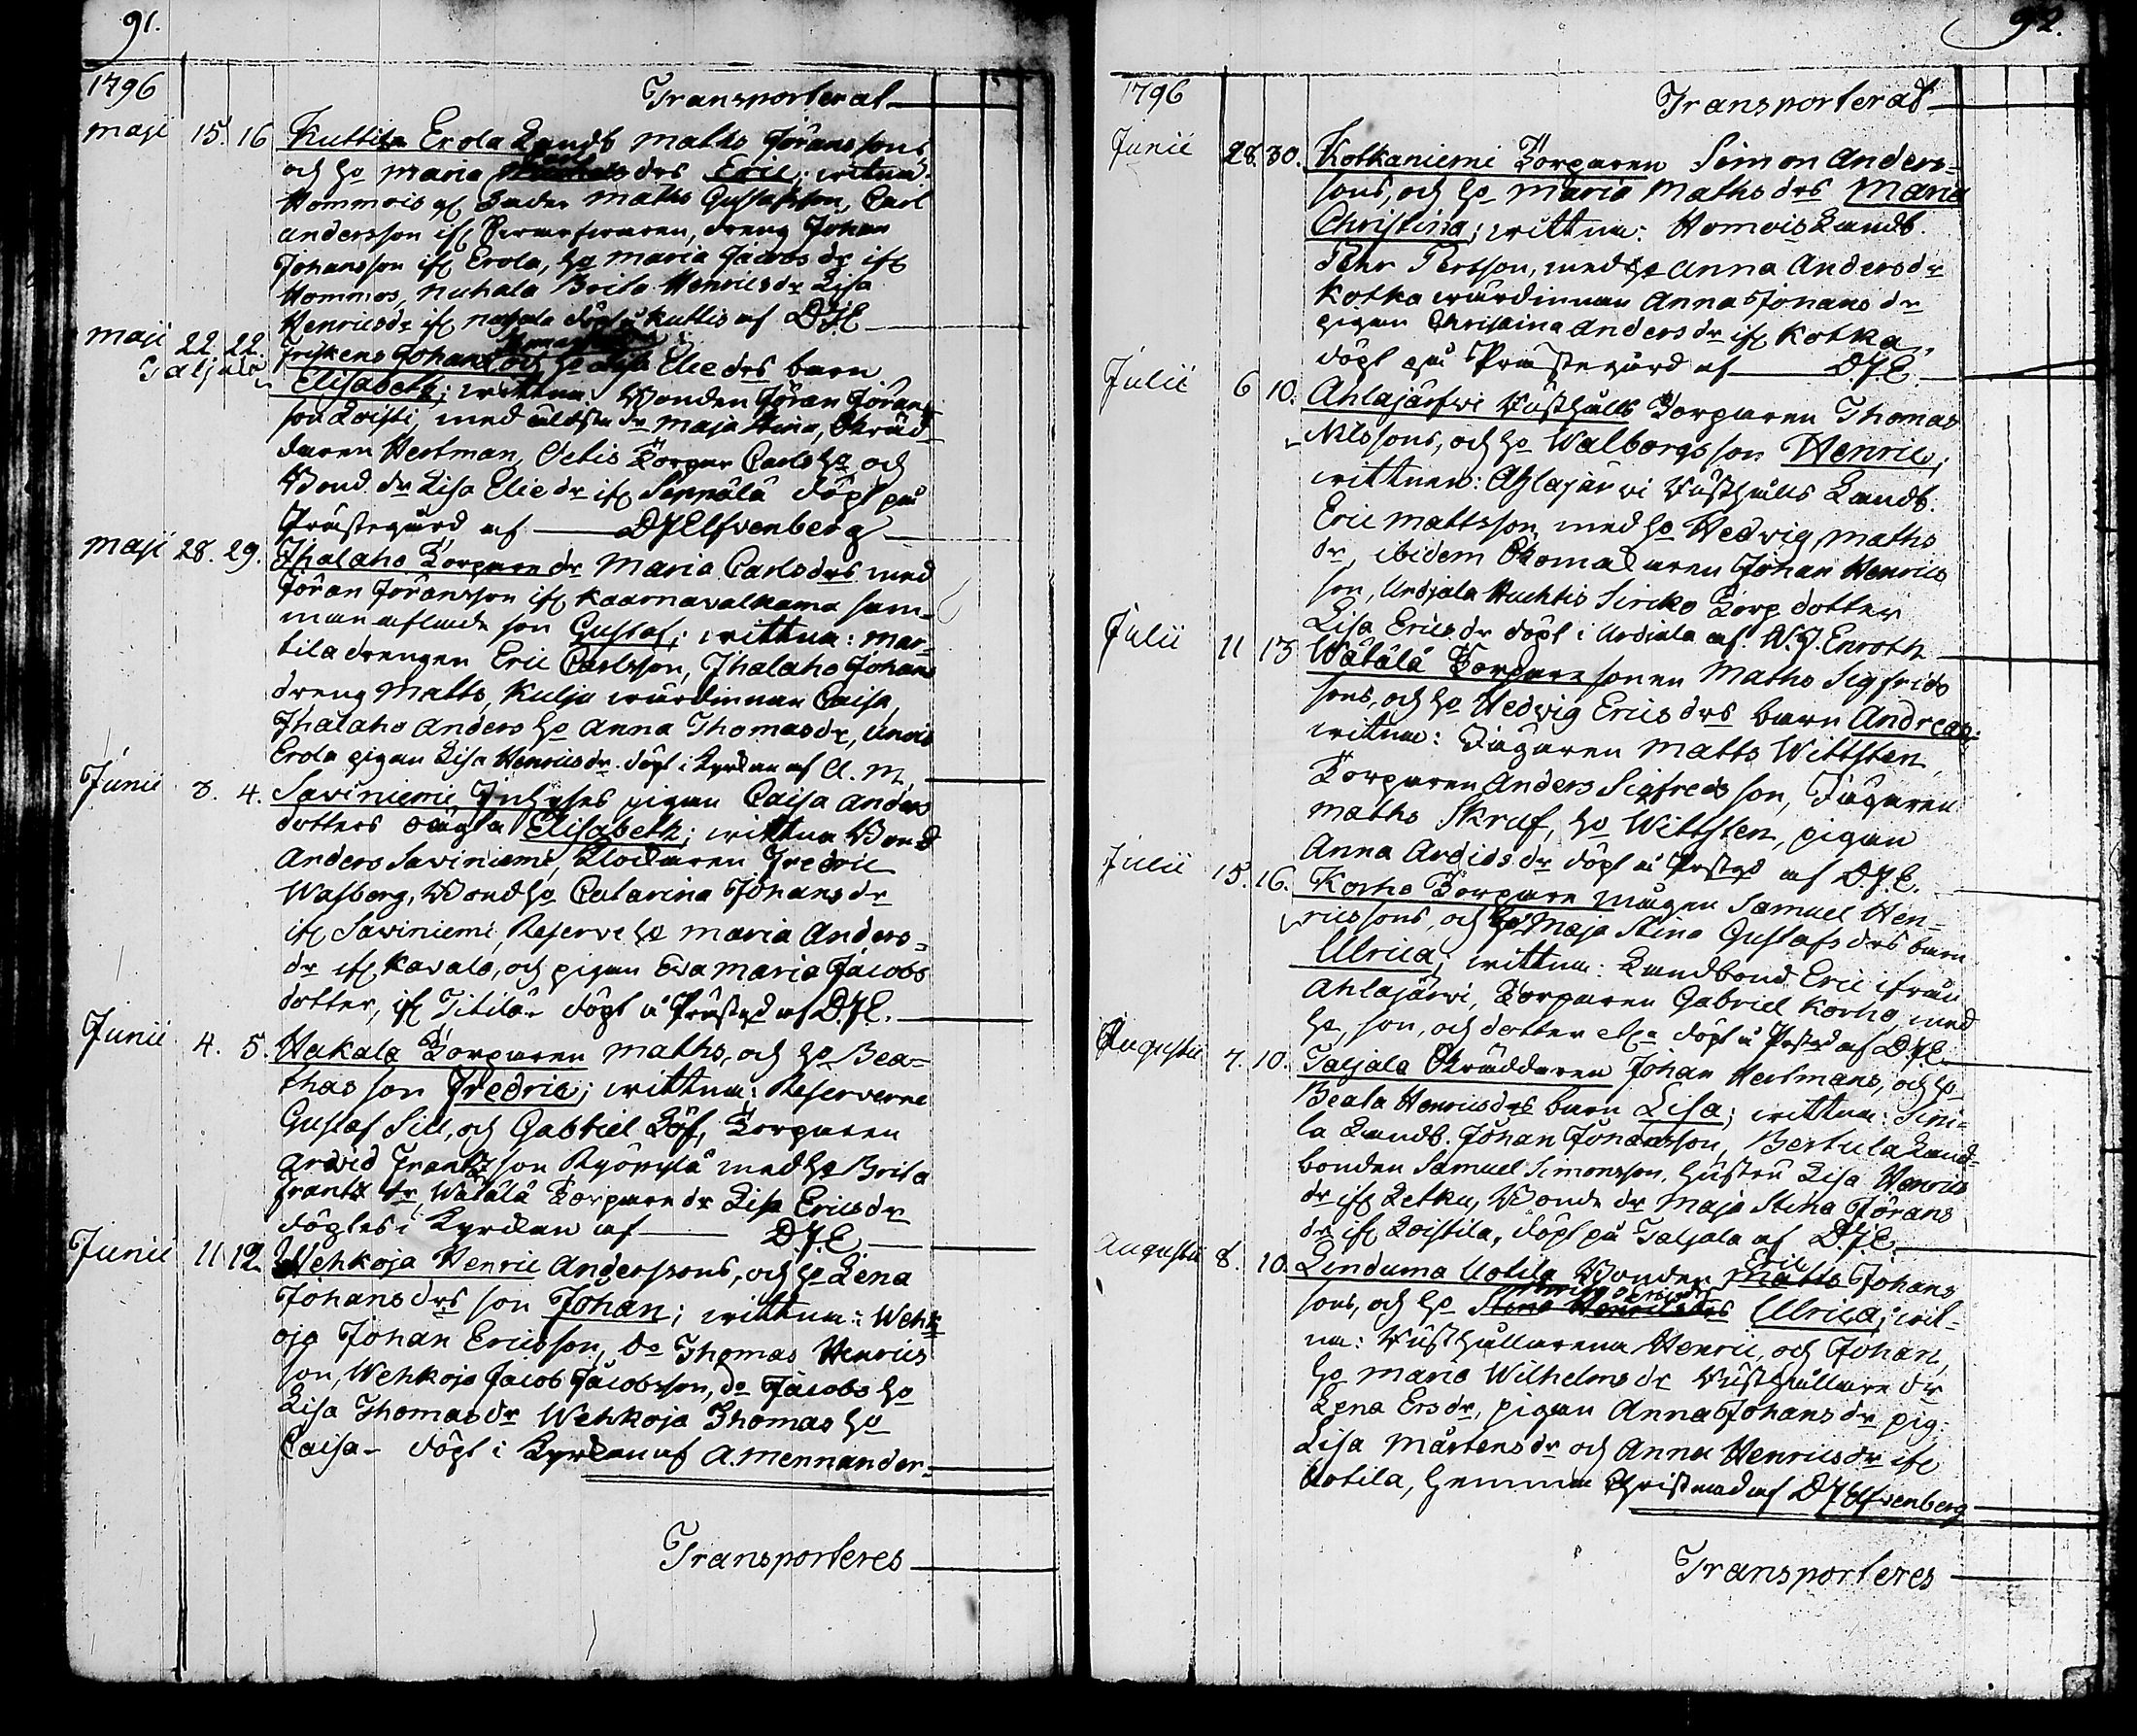 91.
1796 Transporterat
Maji 15. 16 Kuttila Erola Landb Maths Jöranssons
och ho Maria drs Eric; witna:
Hommois Maths Gustafsson, Carl
Andersson ifl dreng Johan
Johansson ifl Erola, ho Maria Jacobsdr ifl
Hommos, Nuhala Brita Henricsdr Lisa
Henricsdr ifl döpt Kuttis af DJE
Maji 22. 22. Johans och ho Eliedrs barn
Taljala
Elisabeth; wittna: Bonden Jöran Jörans
son Loisti, med äldsta dr Maja Stina, Skräd
daren Hertman, Torpar Carls ho och
Bond. dr Lisa Eliedr ifl Seppälä döpt på
Prästegård af DJElfvenberg
Maji 28. 29. Ihalaho Torparedr Maria Carlsdrs med
Jöran Jöransson ifl Kaarnavalkama sam=
manaflade son Gustaf; wittna: Mar=
tila drengen Eric Carlsson, Ihalaho Johans
dreng Matts, Kulju wärdinnan Caisa,
Ihalaho Anders ho Anna Thomasdr,
Erola pigan Lisa Henricsdr. döpt i Kyrkan af A. M.
Junii 3. 4. Saviniemi pigan Caisa Anders
dotters oägta Elisabeth; wittna Bond
Anders Saviniemi, Klockaren Fredric
Wasberg, Bond ho Catarina Johansdr
ifl Saviniemi, Reserve ho Maria Anders=
dr ifl Kavala, och pigan Eva Maria Jacobs
dotter, ifl Titilä döpt å Prästgd af D.J.E.
Junii 4. 5. Hakala Torparen Maths, och ho Bea=
thas son Fredric; wittna: Reserverne
Gustaf Sill, och Gabriel Löf, Torparen
Arvid Frantsson Kyöpylä med ho Brita
Frants dr, Wätälä Torparedr Lisa Ericsdr
döptes i Kyrkan af D.J.E.
Junii 11. 12. Wehkoja Henric Anderssons, och ho Lena
Johansdrs son Johan; wittna: Wehk
oja Johan Ericsson, do Thomas Henrics
son, Wehkoja Jacob Jacobsson, do Jacobs ho
Lisa Thomasdr Wehkoja Thomas ho
Caisa - döpt i Kyrkan af A. Mennander.
Transporteres
92.
1796 Transporterad
Junii 28. 30. Kotkaniemi Torparen Simon Anders=
sons, och ho Maria Mathsdrs Maria
Christina; wittna: Homois Landb.
Pehr Persson, med ho Anna Andersdr
Kotka wärdinnan Anna Johansdr
pigan Christina Andersdr ifl Kotka,
döpt på Prästegård af DJE
Julii 6 10. Ahlajärfwi Rusthålls Torparen Thomas
Nilssons, och ho Walborgs son Henric;
wittnen: Ahlajärwi Rusthålls Landb.
Eric Mattsson, med ho Hedwig Maths
dr, ibidem Skomakaren Johan Henrics
son, Urdjala Huchtis Siriko Torp dotter
Lisa Ericsdr döpt i Urdiala af. N. J. Enroth
Julii 11 13 Wätälä Torparesonen Maths Sigfrids
sons, och ho Hedvig Ericsdrs barn Andreas:
witna: Jägaren Matts Wittsten,
Torparen Anders Sigfreds son, Jägaren
Maths Skruf, ho Wittsten, pigan
Anna Arvidsdr döpt å Prstgd af D.J.E.
Julii 15. 16. Korho Torpare mågen Samuel Hen=
ricssons, och ho Maja Stina Gustafsdrs barn
Ulrica; wittna: Landbond Eric ifrån
Ahlajärwi, Torparen Gabriel Korho, med
ho, son, och dotter döpt å Prstgd af D.J.E.
Augustii 7. 10. Taljala Skräddaren Johan Hertmans, och ho
Beata Henricsdrs barn Lisa; wittna: Sini=
la Landb. Johan Johansson, Bertula Land=
bonden Samuel Simonsson, hustru Lisa Henrics
dr ifl Ketku, Bonde dr Maja Stina Jörans
dr ifl Loistila, döpt på Taljala af D.J.E.
Augustii 8. 10. Linduma Uotila Bonden Eric Matts Johans
sons, och ho Stina Henricsdrs Ulrica; wit=
na: Rusthållarena Henric, och Johan,
ho Maria Wilhelmsdr Rusthållare dr
Lena Ersdr, pigan Anna Johansdr pig.
Lisa Mårtensdr och Anna Henricsdr ifl
Uotila, hemma Christnad af DJElfvenberg
Transporteres